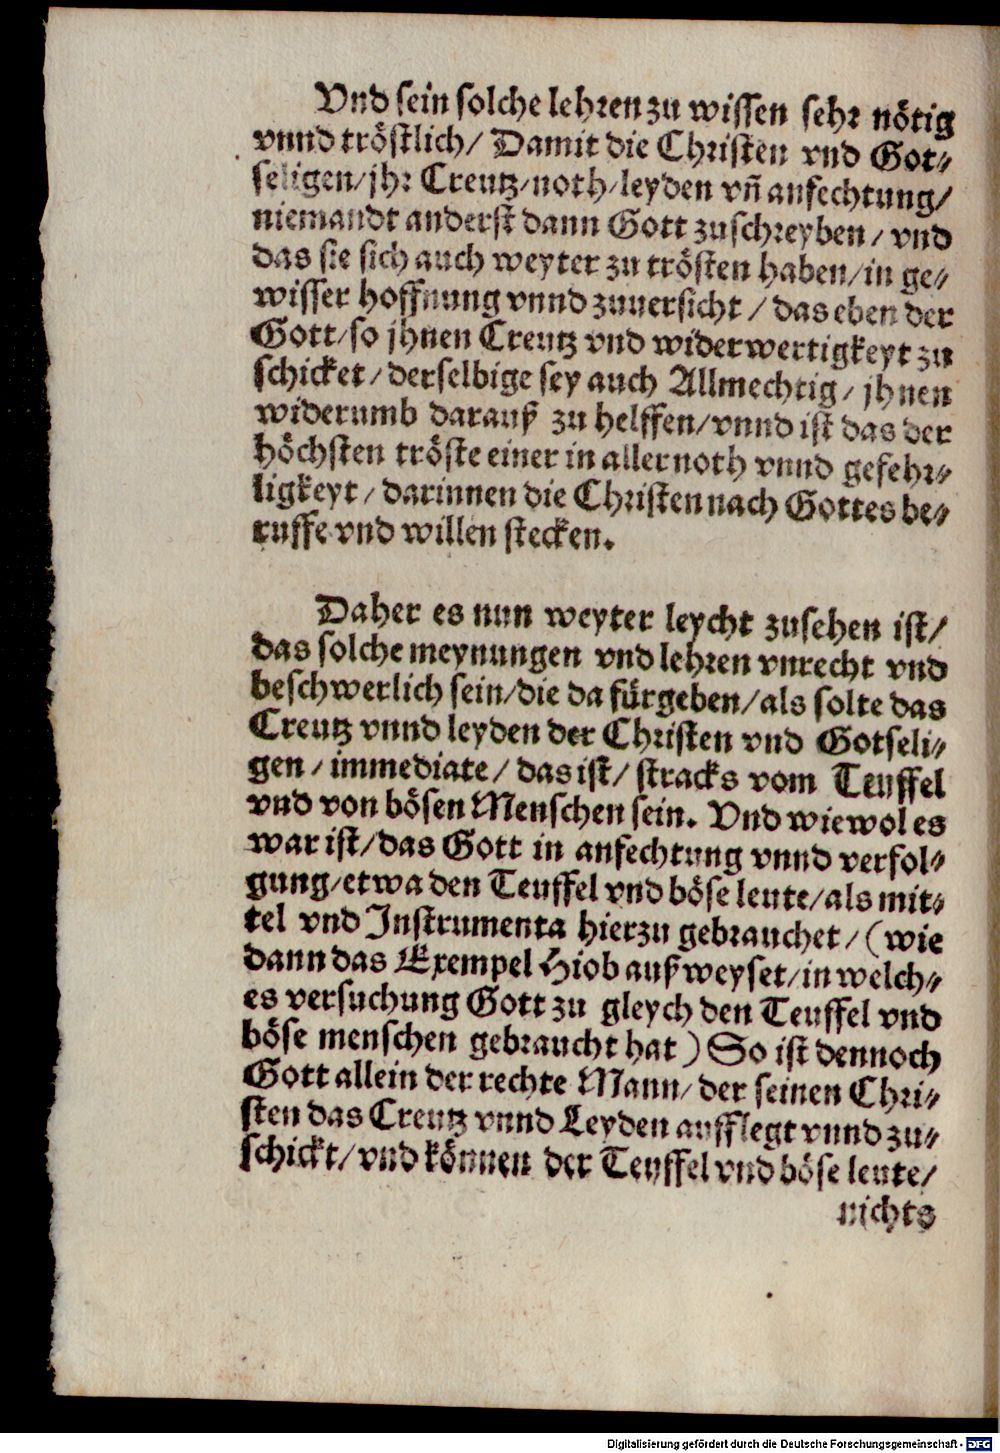 Vnd sein solche lehren zu wissen sehr nötig
vnnd tröstlich/ Damit die Christen vnd Got⸗
seligen/jhr Creutz/noth/leyden vñ anfechtung/
niemandt anderst dann Gott zuschreyben/ vnd
das sie sich auch weyter zu trösten haben/in ge⸗
wisser hoffnung vnnd zuuersicht/ das eben der
Gott/so jhnen Creutz vnd widerwertigkeyt zu
schicket/ derselbige sey auch Allmechtig/ jhnen
widerumb darauß zu helffen/vnnd ist das der
höchsten tröste einer in aller noth vnnd gefehr⸗
ligkeyt/ darinnen die Christen nach Gottes be⸗
ruffe vnd willen stecken.
Daher es nun weyter leycht zusehen ist/
das solche meynungen vnd lehren vnrecht vnd
beschwerlich sein/die da fürgeben/als solte das
Creutz vnnd leyden der Christen vnd Gotseli⸗
gen/ immediate/ das ist/ stracks vom Teuffel
vnd von bösen Menschen sein. Vnd wiewol es
war ist/das Gott in anfechtung vnnd verfol⸗
gung/etwa den Teuffel vnd böse leute/als mit⸗
tel vnd Instrumenta hierzu gebrauchet/ (wie
dann das Exempel Hiob außweyset/in welch⸗
es versuchung Gott zu gleych den Teuffel vnd
böse menschen gebraucht hat) So ist dennoch
Gott allein der rechte Mann/ der seinen Chri⸗
sten das Creutz vnnd Leyden aufflegt vnnd zu⸗
schickt/ vnd können der Teuffel vnd böse leute/
nichts
Digitalisierung gefördert durch die Deutsche Forschungsgemeinschaft - DFG